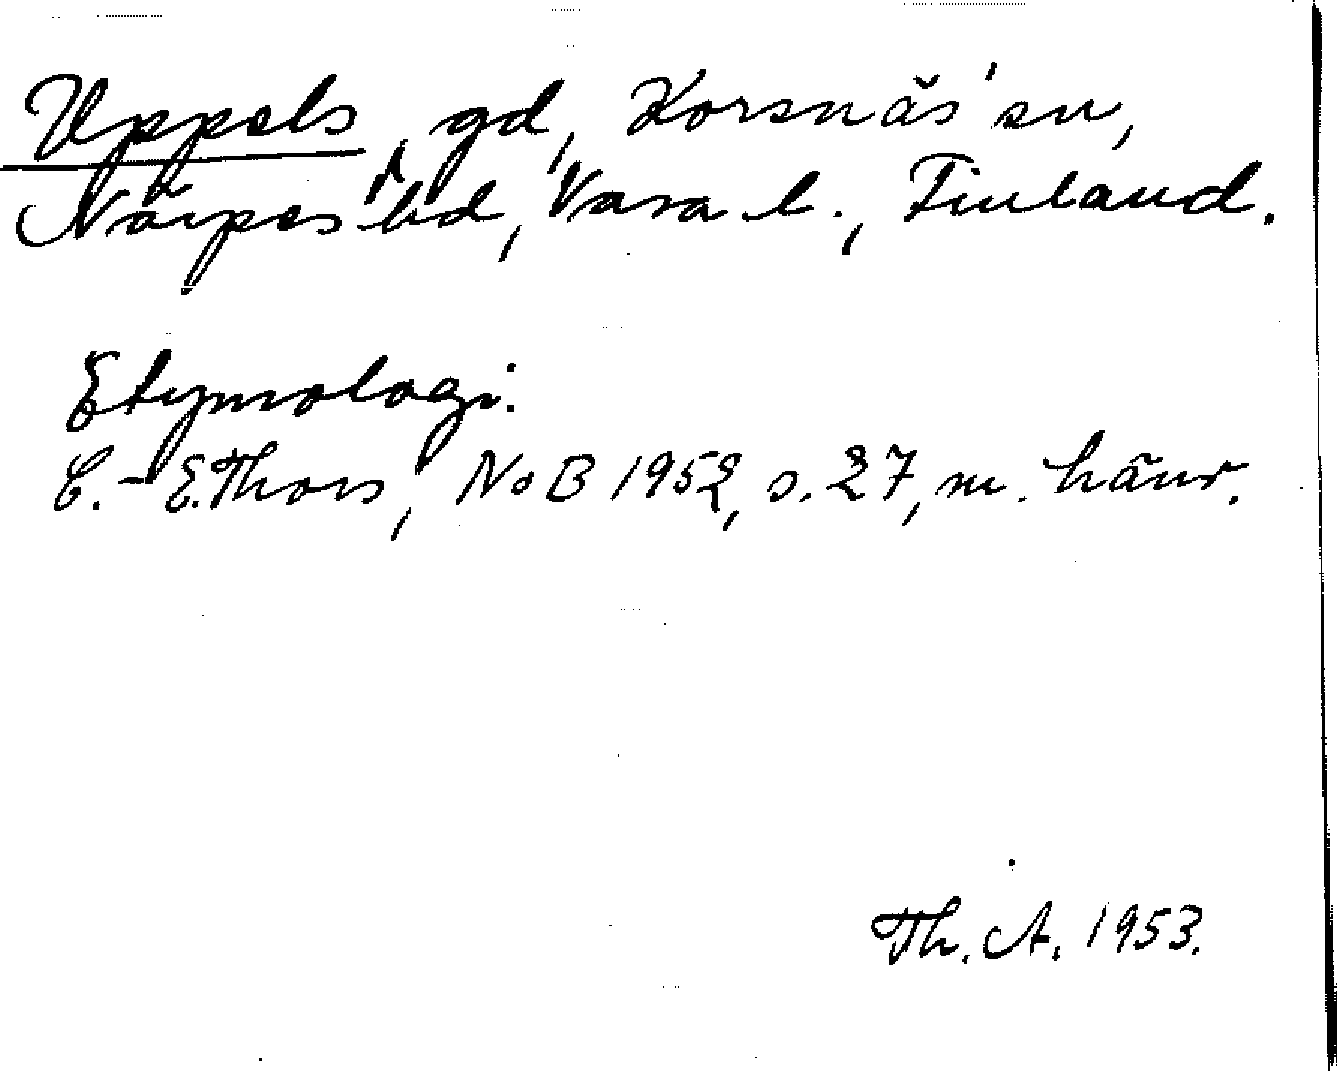 Uppels, gd, Korsnäs sn,
Närpes hd, Vasa l., Finland.
Etymologi.
C.-E. Thors, NoB 1952, s. 27, m. hänv.
Th. A. 1953.